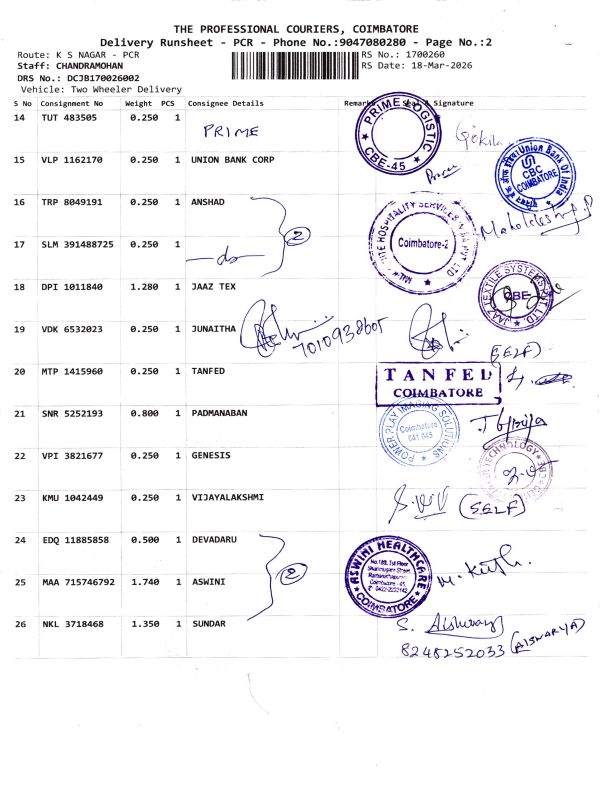 THE PROFESSIONAL COURIERS, COIMBATORE
Delivery Runsheet - PCR - Phone No.:9047080280 - Page No.:2
Route: K S NAGAR - PCR
RS No.: 1700260
Staff: CHANDRAMOHAN
RS Date: 18-Mar-2026
DRS No.: DCJB170026002
Vehicle: Two Wheeler Delivery
S No Consignment No Weight PCS Consignee Details Remarks Seal & Signature
14 TUT 483505 0.250 1 PRIME
PRIME LOGISTIC CBE-45
Gokila
15 VLP 1162170 0.250 1 UNION BANK CORP
Union Bank Of India CBC COIMBATORE
16 TRP 8049191 0.250 1 ANSHAD
2
HOSPITALITY SERVICES PVT LTD
Coimbatore-2
17 SLM 391488725 0.250 1 -do-
18 DPI 1011840 1.280 1 JAAZ TEX
JAAZ TEXTILE SYSTEMS PVT. LTD. CBE
19 VDK 6532023 0.250 1 JUNAITHA
7010938605
(SELF)
20 MTP 1415960 0.250 1 TANFED
TANFED
COIMBATORE
21 SNR 5252193 0.800 1 PADMANABAN
POWERPLAY IMAGING SOLUTIONS
Coimbatore
641 045
22 VPI 3821677 0.250 1 GENESIS
TECHNOLOGY
23 KMU 1042449 0.250 1 VIJAYALAKSHMI
(SELF)
24 EDQ 11885858 0.500 1 DEVADARU
2
ASWINI HEALTHCARE
COIMBATORE
25 MAA 715746792 1.740 1 ASWINI
26 NKL 3718468 1.350 1 SUNDAR
S. Aishwarya
8248252033 (AISWARYA)